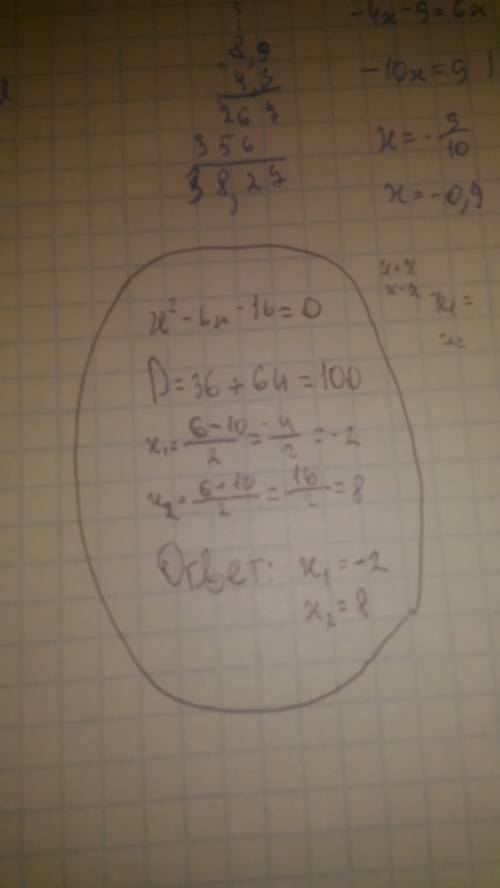 8,9
4,3
267
356
38,27
-4x-9=6x
-10x=9
x=-9/10
x=-0,9
x₁=
x²-6x-16=0
D=36+64=100
x₁=6-10/2=-4/2=-2
x₂=6+10/2=16/2=8
Ответ: x₁=-2
x₂=8